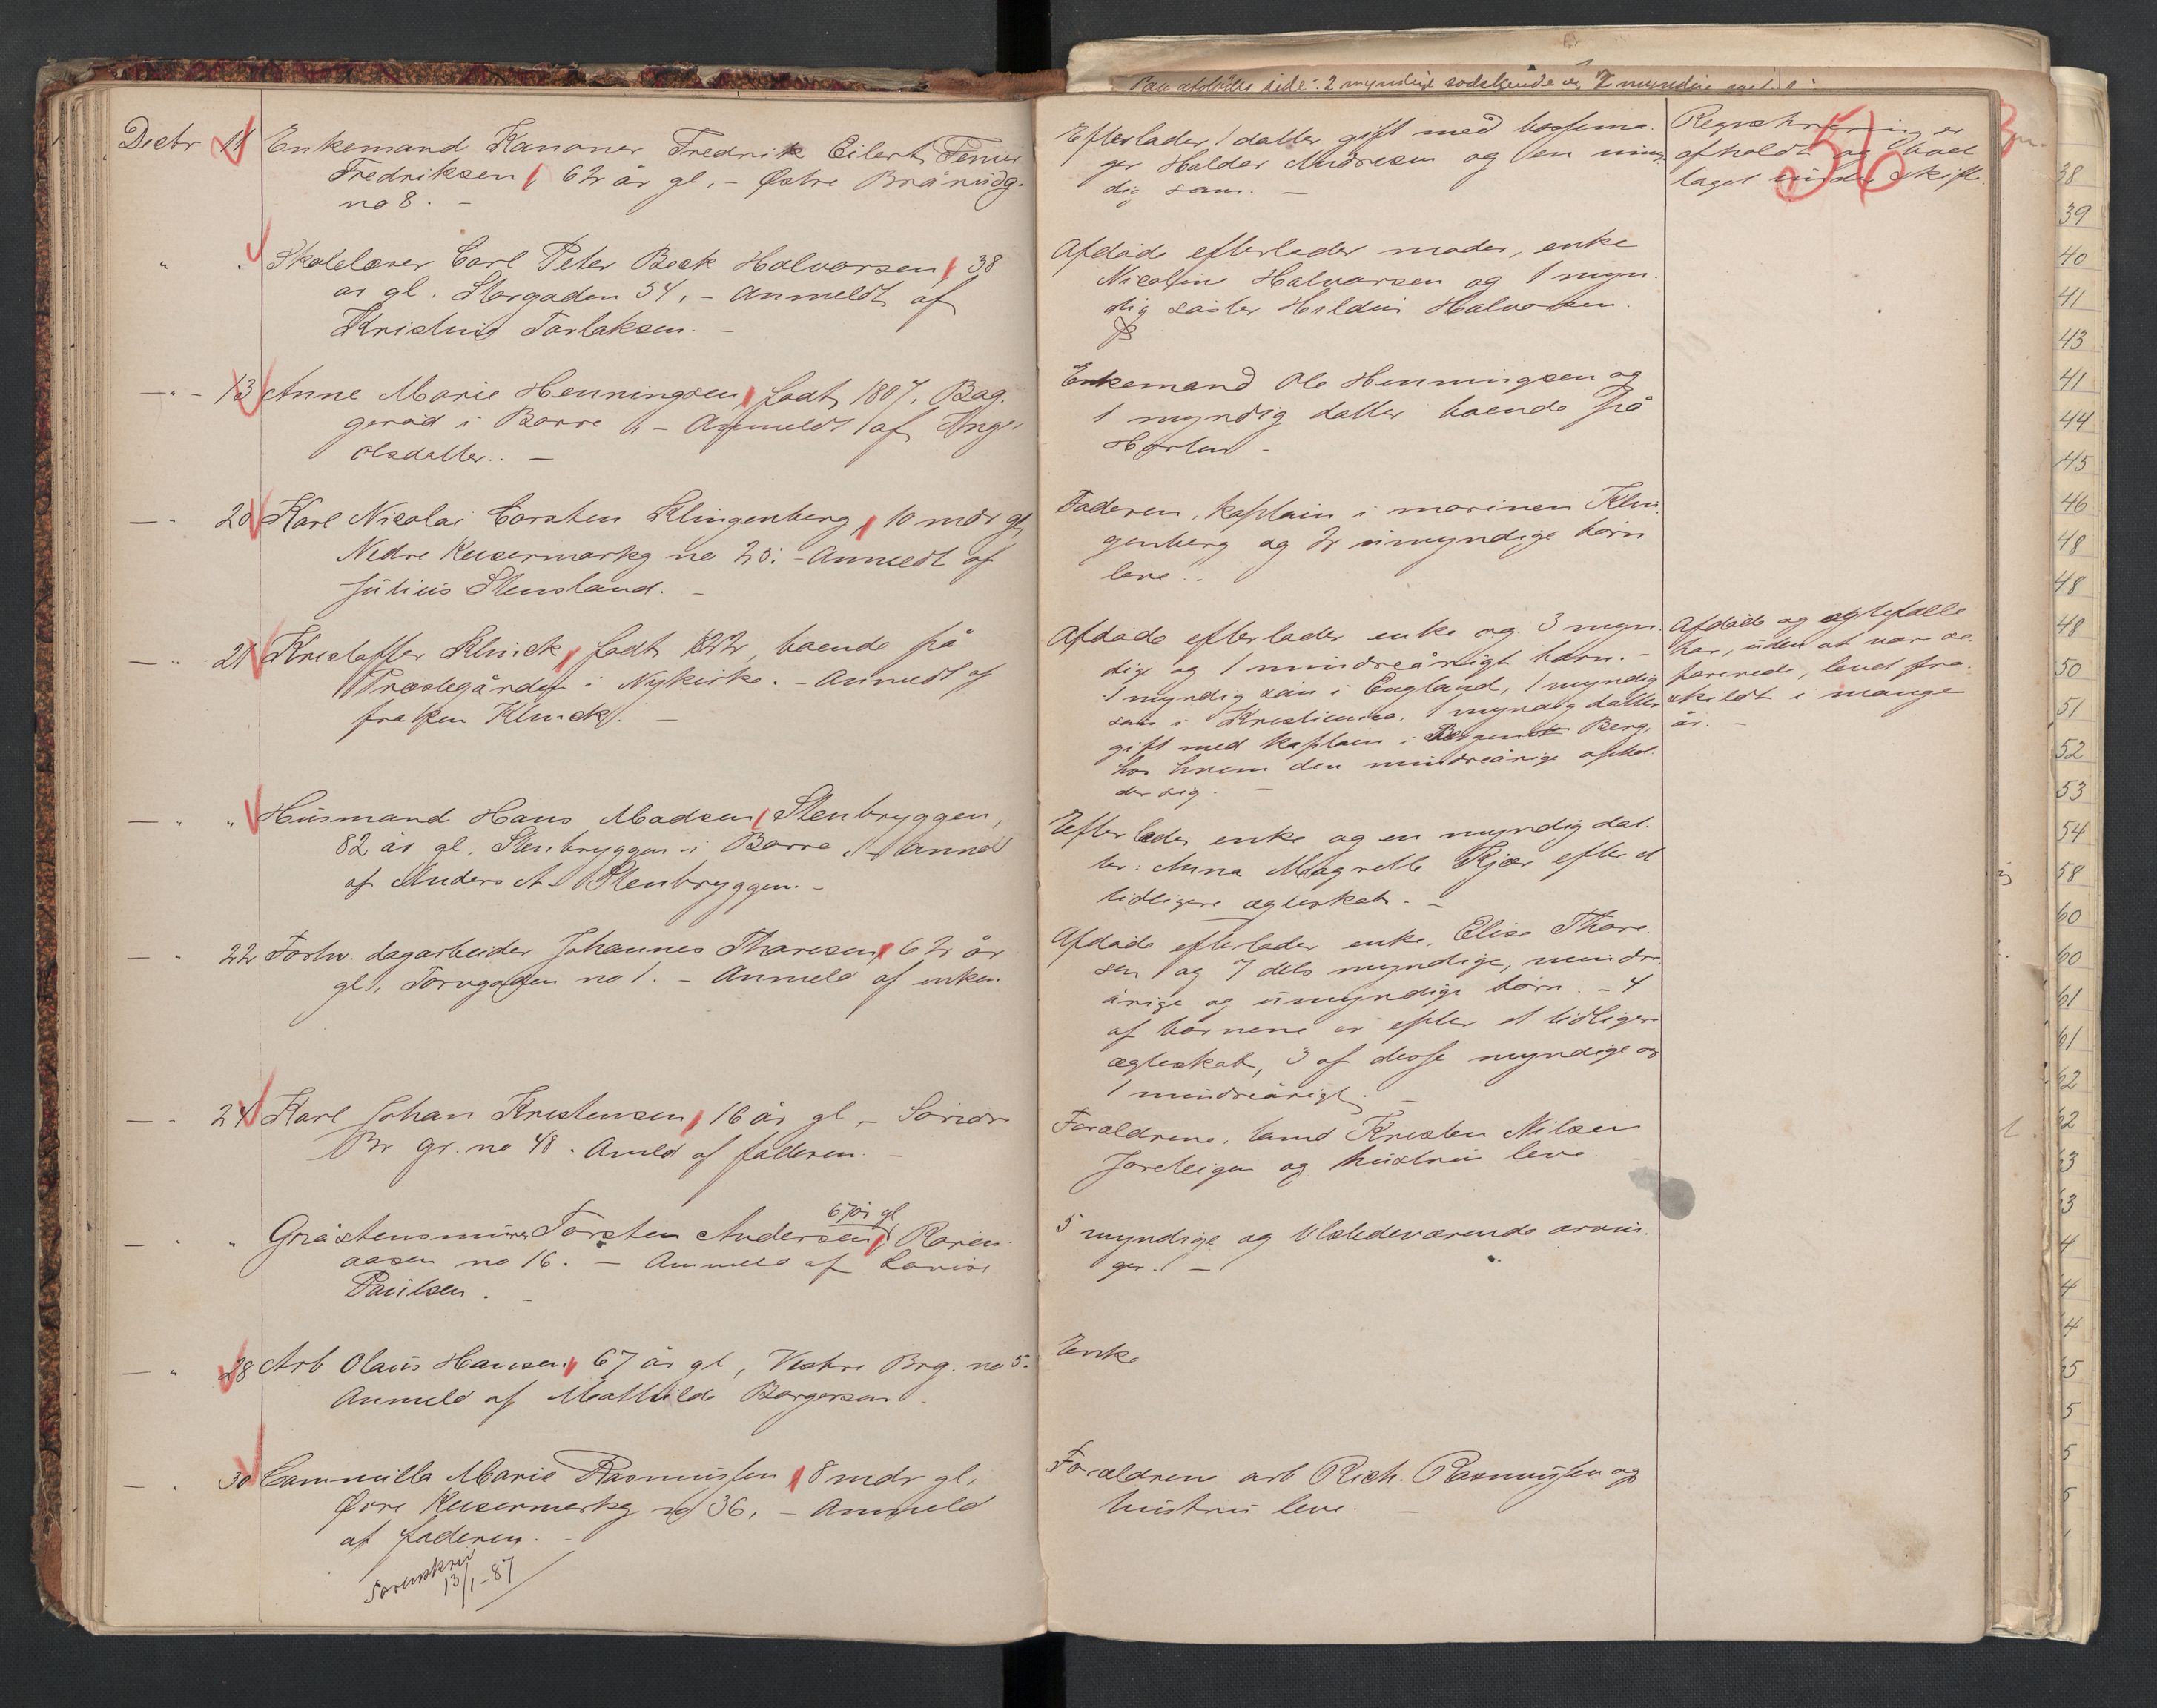 Decbr 11 Enkemand Kanoner Fredrik Eilert
Fredriksen, 62 år gl. - Østre Brårudg.
no 8. -
" " Skolelærer Carl Peter Beck Halvorsen, 38
år gl. Storgaden 54, - Anmeldt af
Kristine Torlaksen. -
- " - 13 Anne Marie Henningsen, født 1807, Bag-
gerød i Borre. - Anmeldt af Inge
Olsdatter. -
- " 20 Karl Nicolai Carsten Klingenberg, 10 mdr gl,
Nedre Keisermarkg no 20. - Anmeldt af
Julius Stensland. -
- " 21 Kristoffer Klinck, født 1822, boende på
Præstegården i Nykirke. - Anmeldt af
frøken Klinck. -
- " " Husmand Hans Madsen, Stenbryggen,
82 år gl, Stenbryggen i Borre. - Anmel
af Anders A. Stenbryggen. -
- " 22 Forhv. dagarbeider Johannes Thoresen, 62 år
gl, Torvgaden no 1. - Anmeld af enken
- " 24 Karl Johan Kristensen, 16 år gl - Søndre
Br gr. no 48. Anmld af faderen. -
67 år gl
- " " Gråstensmurer Torsten Andersen, Roren-
aasen no 16. - Anmeld af Lovise
Paulsen. -
- " 28 Arb Olaus Hansen, 67 år gl, Vestre Brg. no 5.
Anmeld af Mathilde Borgersen.
- " 30 Cammilla Marie Rasmussen, 8 mdr gl,
Øvre Keisermarkg no 36, - Anmeld
af faderen. -
Sorenskriv
13/1-87
56
Efterlader 1 datter gift med bøssema-
ger Haldor Andresen og en myn-
dig søn. -
Registrering er
afholdt og boet
taget under skifte.
Afdøde efterlader moder, enke
Nicoline Halvorsen og 1 myn-
dig søster Hilda Halvorsen.
Enkemand Ole Henningsen og
1 myndig datter boende på
Horten -
Faderen, kaptein i marinen Klin-
genberg og 2 umyndige børn
leve. -
Afdøde efterlader enke og 3 myn-
dige og 1 mindreårigt barn. -
1 myndig søn i England, 1 myndig
søn i Kristiania, 1 myndig datter
gift med kaptein i Bergen Berg,
hos hvem den mindreårige ophol-
der sig. -
Afdøde og ægtefælle
har, uden at være se-
parerede, levet fra-
skildt i mange
år. -
Efterlader enke og en myndig dat-
ter: Anna Magrethe Kjær efter et
tidligere ægteskab. -
Afdøde efterlader enke, Elise Thore-
sen og 7 dels myndige, mindre-
årige og umyndige børn. - 4
af børnene er efter et tidligere
ægteskab, 3 af disse myndige og
1 mindreårigt. -
Forældrene, tømd Kristen Nilsen
Joreteigen og hustru leve. -
5 myndige og tilstedeværende arvin-
ger. -
Enke
Forældrene arb Rich. Rasmussen og
hustru leve. -
38
39
40
41
43
41
44
45
46
48
48
48
50
51
52
53
54
58
60
60
61
61
62
62